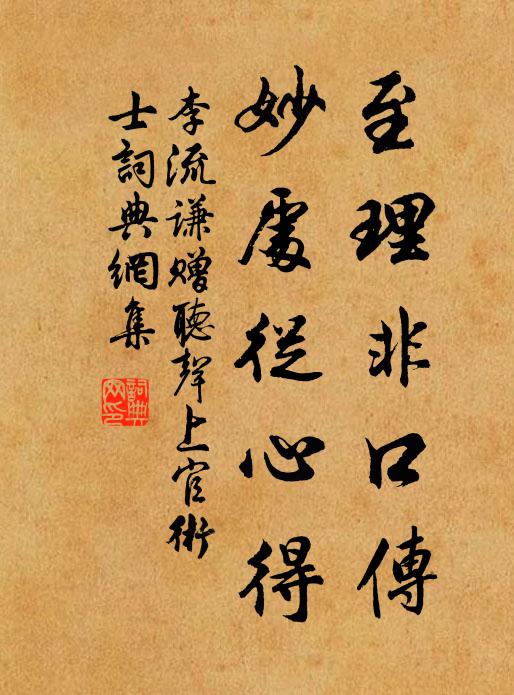 至理非口傳
妙處從心得
李流謙贈聽聲上官術
士詞典網集
詞典網印